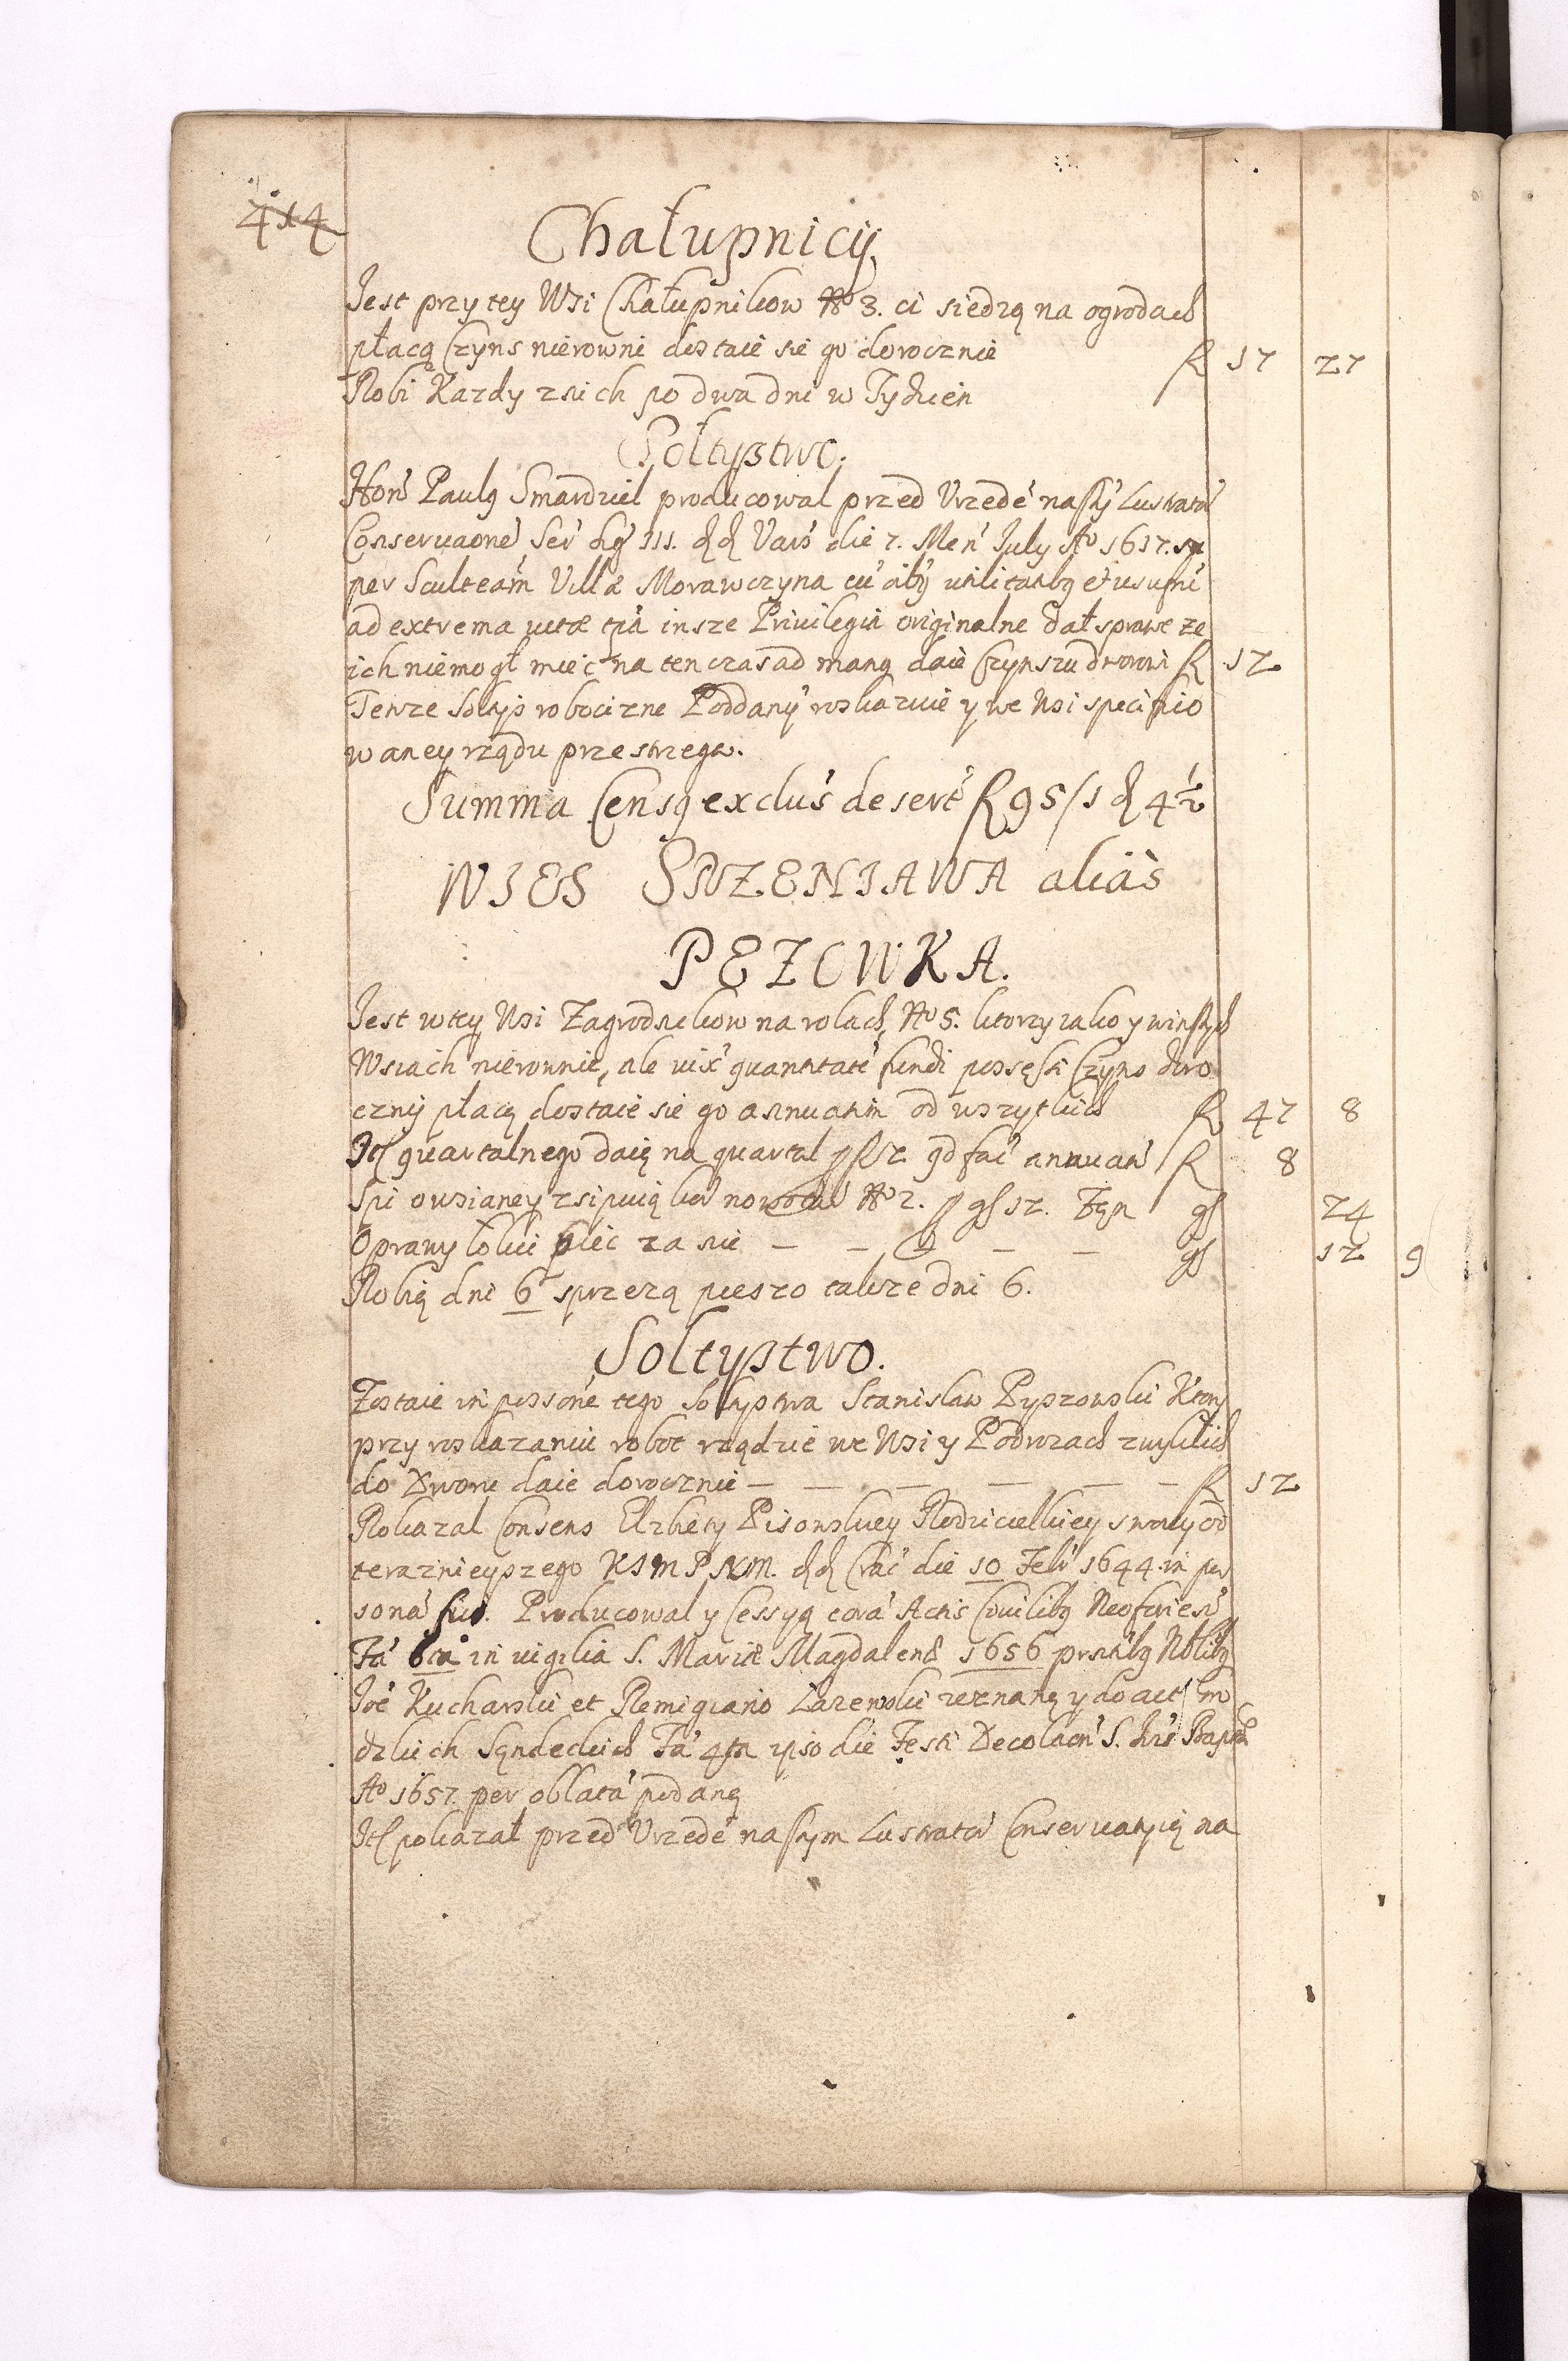 414
Chałupnicy.
Jest przy tey Wsi Chałupnikow No 3. ci siedzą na ogrodach
płacą Czyns nierowni dostaie sie go dorocznie fl 17 27
Robi Kazdy z nich po dwa dni w Tydzien
Sołtystwo.
Hons Paulus Smardziel producowal przed Vrzede naszy Lustrato
Conservaone Ser Rg III. dd Vars die 7. Men July Ao 1617. su
per Sculteam Villæ Morawczyna cu aliy utilitatibus et usufru
ad extrema vitæ tpa insze Privilegia originalne dał sprawe ze
ich niemogł miec na ten czas ad manus daie Czynszu dworowi fl 12
Tenze Sołtys robocizne Poddany roskazuie y we Wsi specifio
waney rządu przestrzega.
Summa Census exclus desert fl 95 / 1 d 4½
WIES SRZENIAWA alias
PEZOWKA.
Jest w tey Wsi Zagrodnikow na rolach No 5. ktorzy iako y winszych
Wsiach nierownie, ale iux quantitate fundi possessi Czyns doro
czny płacą dostaie sie go annuatim od wszytkich fl 47 8
Itl quartalnego daią na quartal p fl 2 qd fac annuati fl 8
Spi owsianey zsipuią No 2. p gs 12. gs 24
Oprawy łokci piec za nie — — — — gs 12 9
Robią dni 6 sprzezą pieszo takze dni 6.
Soltystwo.
Zostaie in possone tego Soltystwa Stanislaw Pyszowski Ktory
przy roskazaniu robot rządzie we Wsi y Podwozach zwyklich
do Dworu daie dorocznie — — — — — fl 12
Pokazal Consens Elzbety Pisowskiey Rodzicielkiey swoiey od
teraznieyszego KIMPNM. dd Crac die 10 Feb 1644 in per
sona sua. Producowal y Cessyą cora Actis Civilibus Neoforien
Fa 6ta in vigilia S. Mariæ Magdalenæ 1656 prsntibus Nbilibus
Joe Kucharski et Remigiano Lazewski zeznaną y do act Gro
dzkich Sąndeckich Fa 4ta ipso die Festi Decolaon S. Bapt
Ao 1657. per oblata podaną
Itl pokazał przed Vrzede naszym Lustrato Conservatyią na